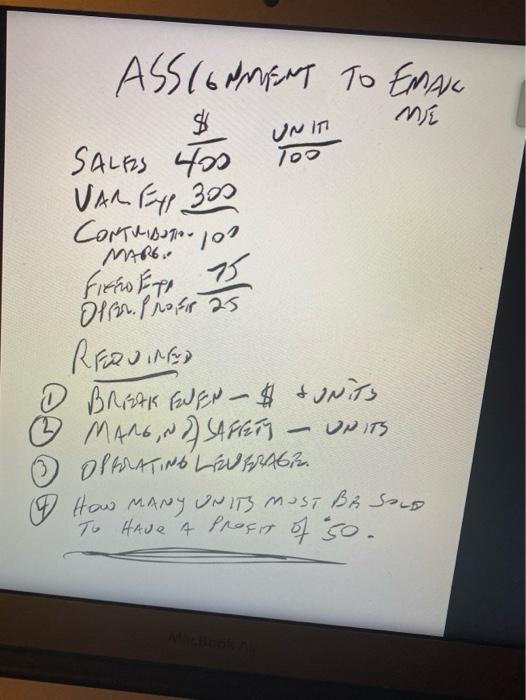 ASSIGNMENT TO EMAIL
ME
$ UNIT
SALES 400 100
VAR EXP 300
CONTRIBUTION 100
MARG.
FIXED EXP 75
OPER. PROFIT 25
REQUIRED
① BREAK EVEN - $ & UNITS
② MARGIN OF SAFETY - UNITS
③ OPERATING LEVERAGE.
④ HOW MANY UNITS MUST BE SOLD
TO HAVE A PROFIT OF $50.
MacBook Air